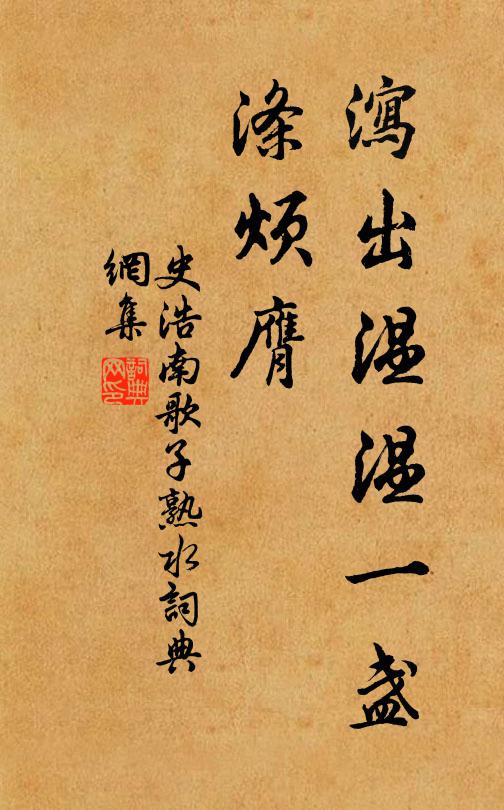 瀉出温温一盞
滌煩膺
史浩南歌子熟水詞典
網集
詞典
网印